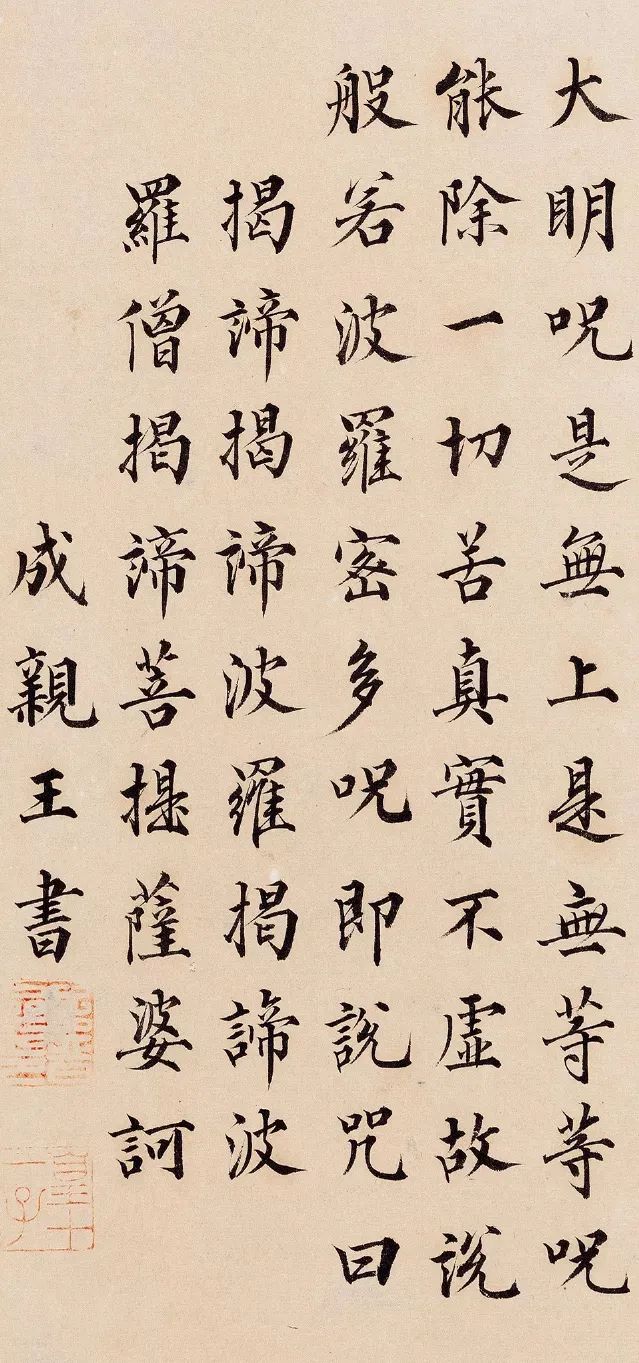 大明呪是無上是無等等呪
能除一切苦真實不虛故說
般若波羅密多呪即說咒曰
揭諦揭諦波羅揭諦波
羅僧揭諦菩提薩婆訶
成親王書